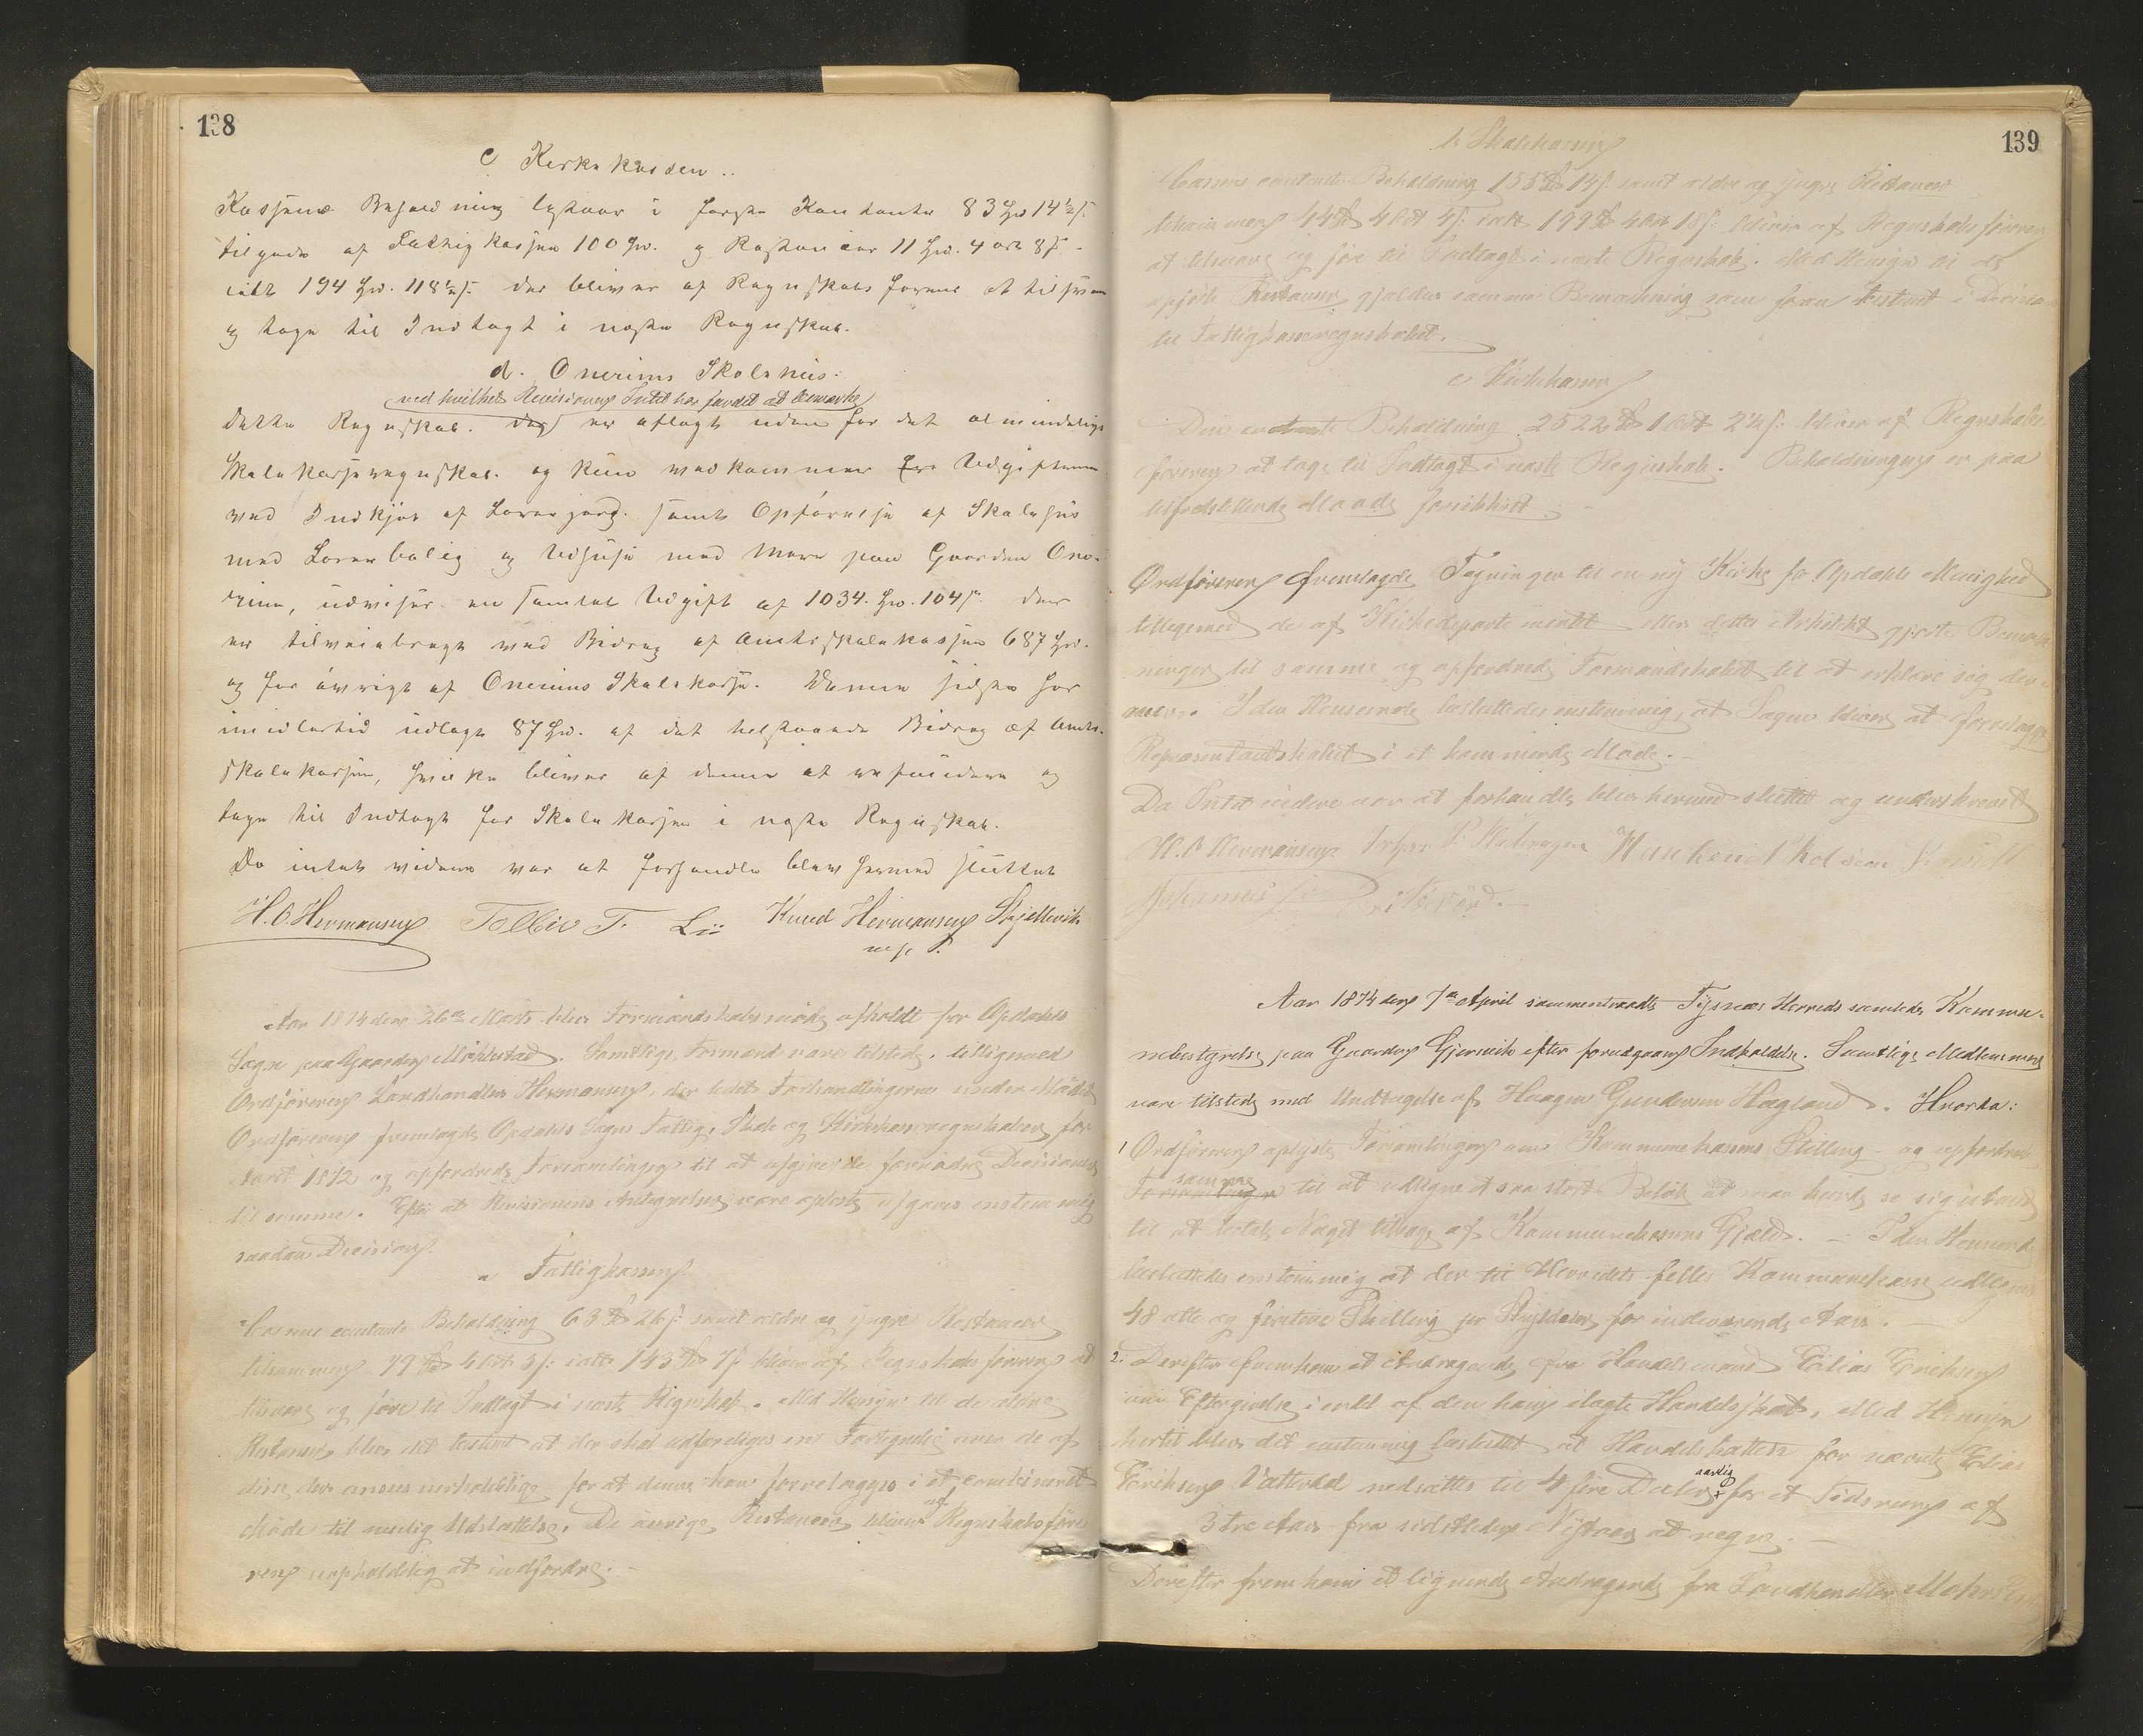 138
c Kirkekassen ..
Kassens Beholdning bestaar i første Kontante 83 Spd 14½ s.
tilgode af Fattigkassen 100 Spd. og Restancer 11 Spd. 4 ort 8 s -
ialt 194 Spd. 118½ s. der bliver af Regnskabsføreren at tilsvare
og tage til Indtægt i næste Regnskab.
d. Onerims Skolehus.
ved hvilket Revisionen Intet har fundet at bemærke
dette Regnskab. er aflagt uden for det almindelige
Skolekasseregnskab. og kun vedkommer Udgifterne
ved Indkjøb af Lærerjord. samt Opførelse af Skolehus
med Lærerbolig og Udhuse med mere paa Gaarden One-
rim, udviser en samlet Udgift af 1034. Spd. 104 s. der
er tilveiebragt ved Bidrag af Amtsskolekassen 687 Spd.
og for øvrigt af Onerims Skolekasse. Denne sidste har
imidlertid udlagt 87 Spd. af det tilstaaede Bidrag af Amts-
skolekassen, hvilke bliver af denne at refundere og
tage til Indtægt for Skolekassen i næste Regnskab.
Da intet videre var at forhandle blev hermed sluttet
H. O. Hermansen Tollev T. Lii Knud Hermansen Skjellevik
m. p. P.
Aar 1874 den 26de Marts blev Formandskabsmøde afholdt for Opdahls
Sogn paa Gaarden Møklestad. Samtlige Formænd vare tilstede, tilligemed
Ordføreren Landhandler Hermansen, der ledet Forhandlingerne under Mødet
Ordføreren fremlagde Opdahls Sogns Fattig, Skole og Kirkekasseregnskaber for
Aaret 1872 og opfordrede Forsamlingen til at afgive de fornødne Decisioner
til samme. Efter at Revisionens Antegnelser vare oplæste afgaves enstemmig
saadan Decision.
a Fattigkassen
Cassens contante Beholdning 63 Spd 26 s. samt ældre og yngre Restancer
tilsammen 79 Spd 4 ort 5 s. ialt 143 Spd 7 s. bliver af Regnskabsføreren at
tilsvare og føre til Indtægt i næste Regnskab. Med Hensyn til de ældre
Restancer blev det bestemt at der skal udfærdiges en Fortegnelse over de af
disse der ansees uerholdelige for at denne kan forrelægges i et combineret
Møde til muelig Udslettelse. De øvrige Restancer bliver af Regnskabsføre
ren uopholdelig at indfordre. -
139
b. Skolekassen
Cassens contante Beholdning 155 Spd 14 s. samt ældre og yngre Restancer
tilsammen 44 Spd 4 ort 4 s. ialt 199 Spd 4 ort 18 s. bliver af Regnskabsføreren
at tilsvare og føre til Indtægt i næste Regnskab. Med Hensyn til de
opførte Restancer gjælder samme Bemærkning som foran bestemt i Decision
til Fattigkasseregnskabet.
c Kirkekassen
Den contante Beholdning 2522 Spd 1 ort 2½ s. bliver af Regnskabs-
føreren at tage til Indtægt i næste Regnskab. Beholdningen er paa
tilfredstillende Maade forsikkret. -
Ordføreren fremlagde Tegninger til en ny Kirke for Opdahls Menighed
tilligemed de af Kirkedepartementet eller dettes Arkitekt gjorte Bemærk
ninger til samme og opfordrede Formandskabet til at erklære sig der-
over. I den Henseende besluttedes enstemmig, at Sagen bliver at forrelægge
Repræsentantskabet i et kommende Møde. -
Da Intet videre var at forhandle blev hermed sluttet og underskrevet
H. O. Hermansen
Johannes
Aar 1874 den 7de April sammentraadte Tysnæs Herreds samlede Kommu-
nebestyrelse paa Gaarden Gjerevik efter forudgaaen Indkaldelse. Samtlige Medlemmer
vare tilstede med Undtagelse af Haagen Gundersen Hægland. Hvorda:
1 Ordføreren oplyste Forsamlingen om Kommunekassens Stilling - og opfordrede
samme
til at udligne et saa stort Beløb at man kunde se sig istand
til at betale Noget tilbage af Kommunekassens Gjæld. - I den Henseende
besluttedes enstemmig at der til Herredets felles Kommunekasse udlignes
48 otte og firetive Skilling pr Skylddaler for indeværende Aar. -
2. Derefter fremkom et Andragende fra Handelsmand Elias Eriksen
om Eftergivelse i endel af den ham ilagte Handelsskat, Med Hensyn
hertil blev det enstemmig besluttet at Handelskatten for nævnte Elias
Eriksen Vattvad nedsættes til 4 fire Daler aarlig for et Tidsrum af
3 tre Aar fra sidstleden Nytaar at regne. -
Derefter fremkom et lignende Andragende fra Landhandler Mohn